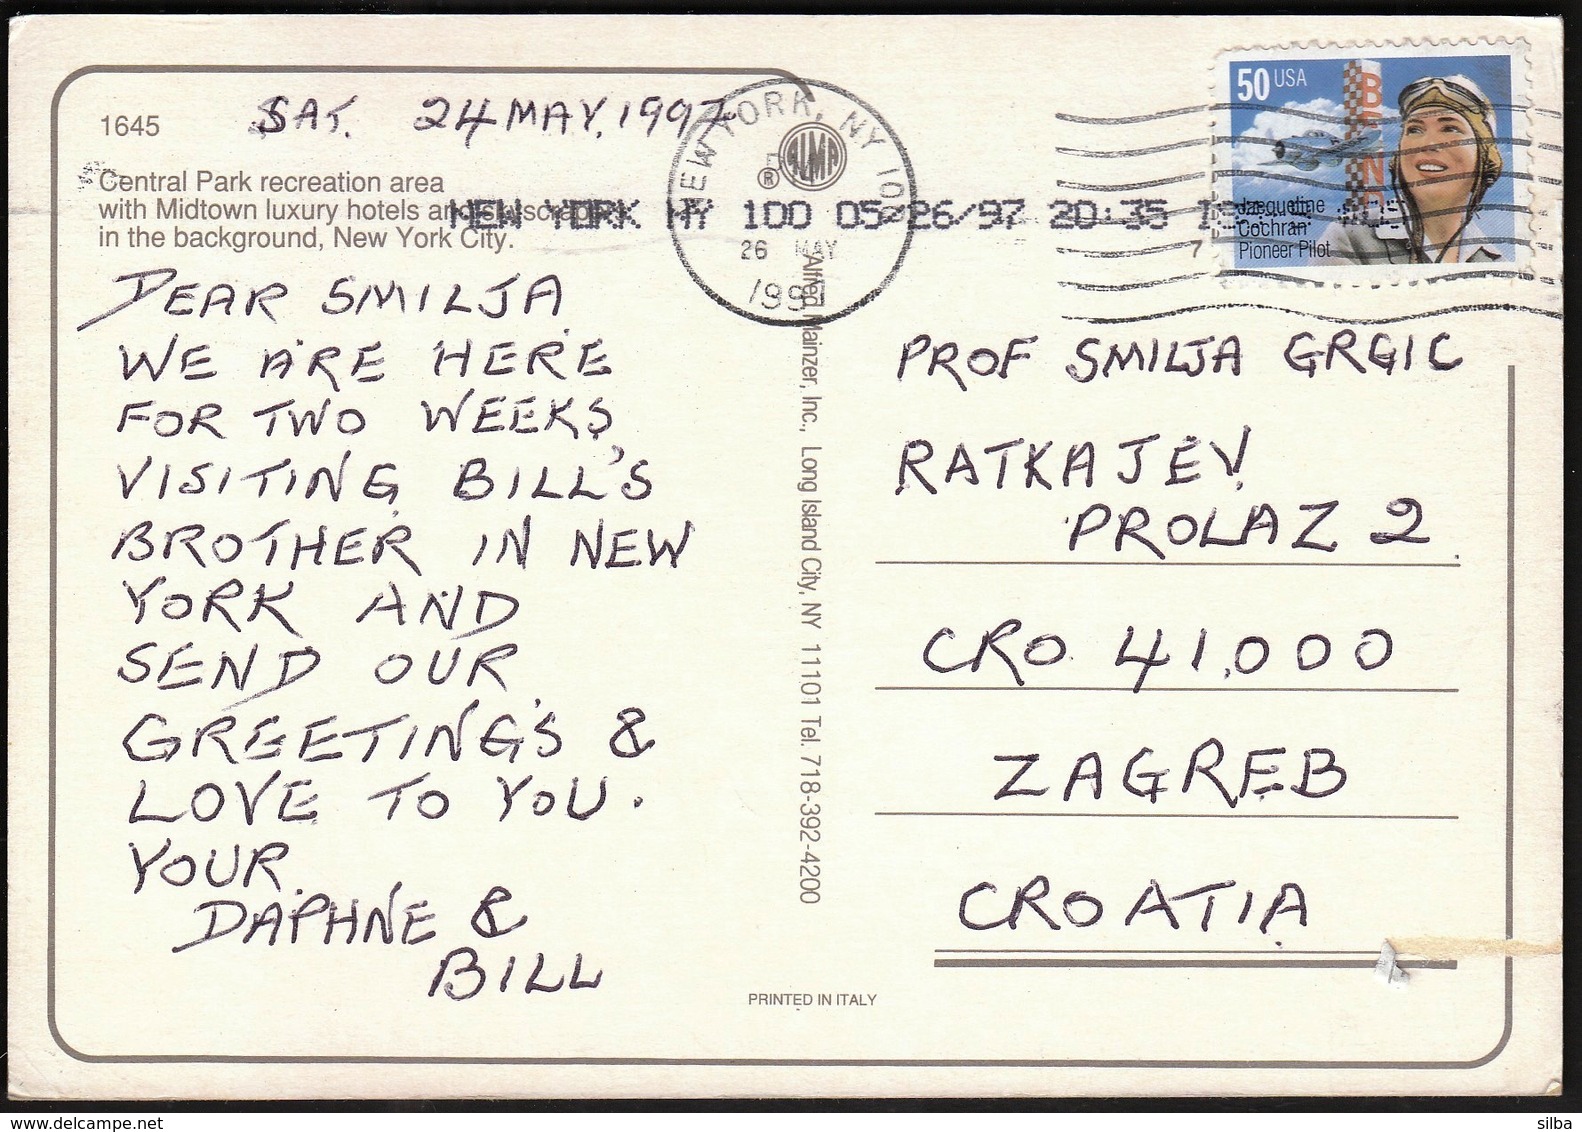 1645
SAT. 24 MAY, 1997
Central Park recreation area
with Midtown luxury hotels and skyscrapers
in the background, New York City.
NEW YORK, NY 100
NEW YORK NY 100 05/26/97 20:35
26 MAY
1997
ALMA
®
50 USA
BEN
Jacqueline
Cochran
Pioneer Pilot
7
DEAR SMILJA
WE ARE HERE
FOR TWO WEEKS,
VISITING BILL'S
BROTHER IN NEW
YORK AND
SEND OUR
GREETING'S &
LOVE TO YOU.
YOUR.
DAPHNE &
BILL
Alfred Mainzer, Inc., Long Island City, NY 11101 Tel. 718-392-4200
PRINTED IN ITALY
PROF SMILJA GRGIC
RATKAJEV
PROLAZ 2.
CRO. 41,000
ZAGREB
CROATIA
delcampe.net
silba